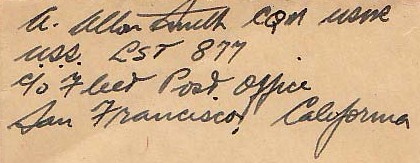 A. Alton Smith CQM USNR
U.S.S. LST 877
c/o Fleet Post Office
San Francisco, California